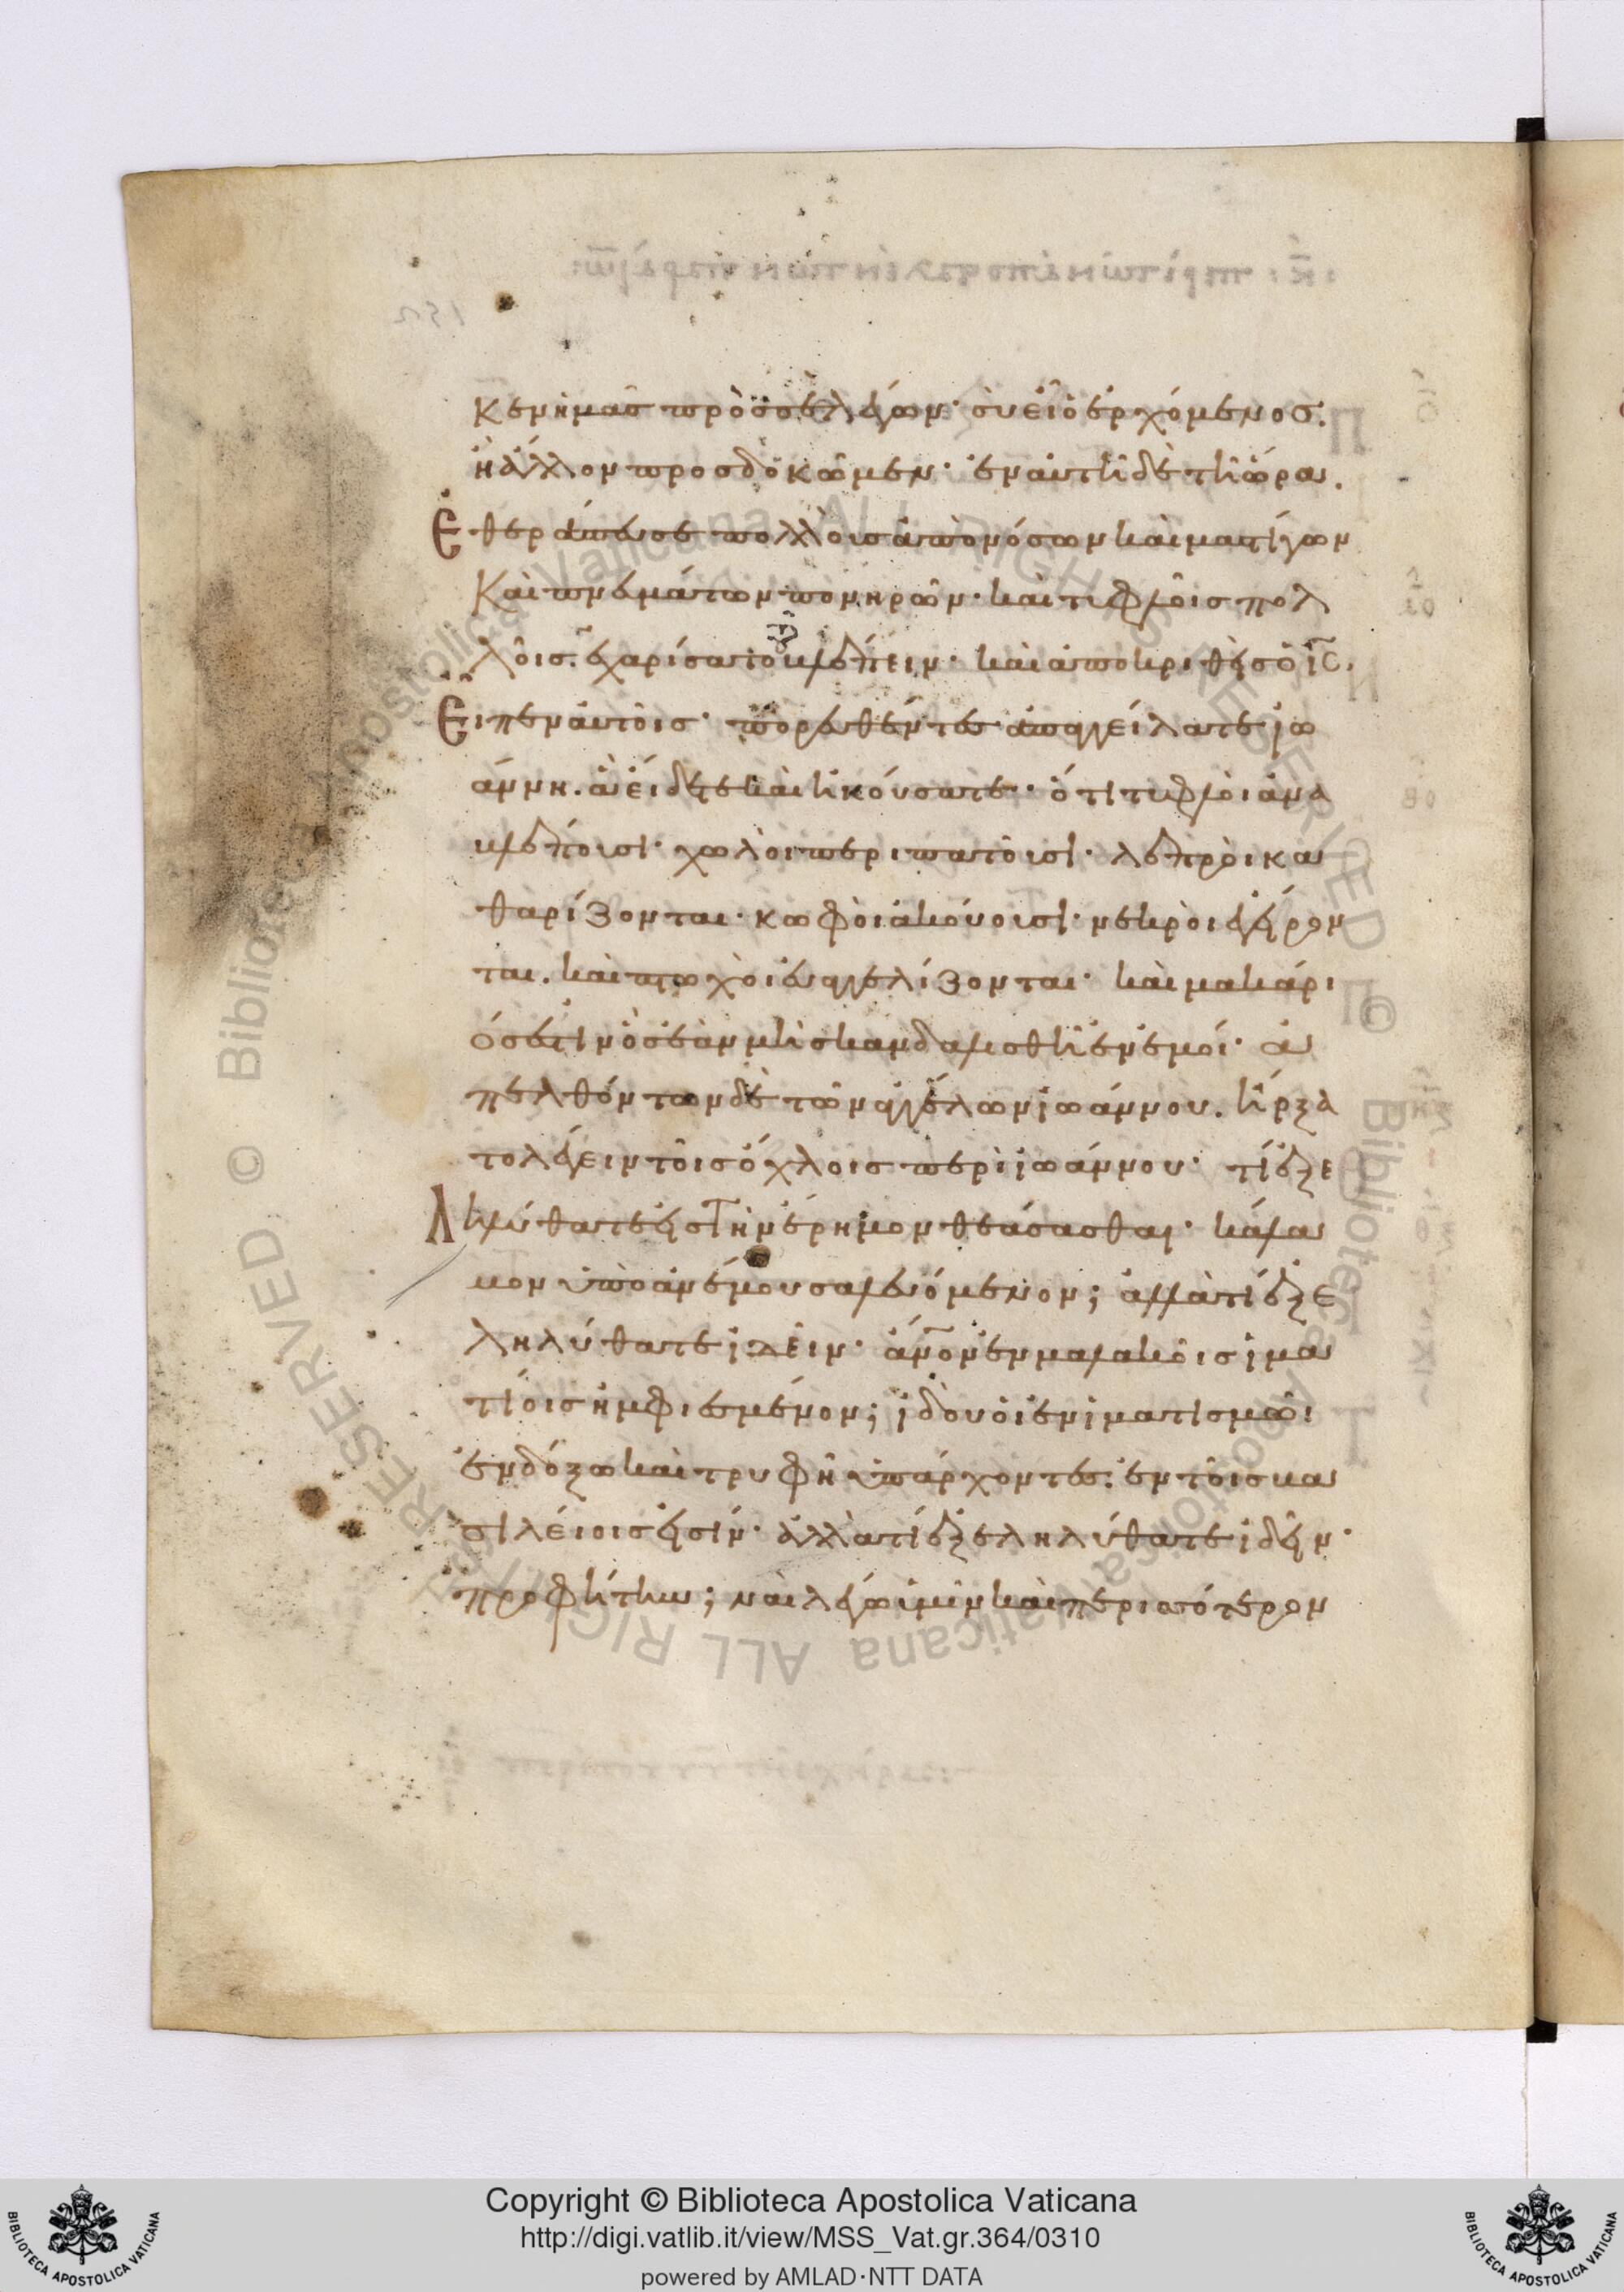 κεν ἡμᾶς πρὸς σὲ λέγων· σὺ εἶ ὁ ἐρχόμενος.
ἢ ἄλλον προσδοκῶμεν· ἐν αὐτῆ δὲ τῆ ὥρα.
Ἐθεράπευσε πολλοὺς ἀπὸ νόσων καὶ μαστίγων
καὶ πνευμάτων πονηρῶν· καὶ τυφλοῖς πολ
λοῖς ἐχαρίσατο βλέπειν· καὶ ἀποκριθεὶς ὁ ις.
Εἶπεν αὐτοῖς· πορευθέντες ἀπαγγείλατε ἰω
άννη. ἃ εἴδετε καὶ ἠκούσατε· ὅτι τυφλοὶ ἀνα
βλέπουσι· χωλοὶ περιπατοῦσι· λεπροὶ κα
θαρίζονται· κωφοὶ ἀκούουσι· νεκροὶ ἐγείρον
ται. καὶ πτωχοὶ εὐαγγελίζονται· καὶ μακάρι
ός ἐστιν ὃς ἐὰν μὴ σκανδαλισθῆ ἐν ἐμοί· ἀ
πελθόντων δὲ τῶν ἀγγέλων ἰωάννου. ἤρξα
το λέγειν τοῖς ὄχλοις περὶ ἰωάννου· τί ἐξε
ληλύθατε εἰς τὴν ἔρημον θεάσασθαι· κάλα
μον ὑπὸ ἀνέμου σαλευόμενον; ἀλλὰ τί ἐξε
ληλύθατε ἰδεῖν· ἄνον ἐν μαλακοῖς ἱμα
τίοις ἠμφιεσμένον; ἰδοὺ οἱ ἐν ἱματισμῶ
ἐνδόξω καὶ τρυφῆ ὑπάρχοντες. ἐν τοῖς βα
σιλείοις εἰσίν· ἀλλὰ τί ἐξεληλύθατε ἰδεῖν·
προφήτην; ναὶ λέγω ὑμῖν καὶ περισσότερον
Copyright © Biblioteca Apostolica Vaticana
http://digi.vatlib.it/view/MSS_Vat.gr.364/0310
powered by AMLAD·NTT DATA